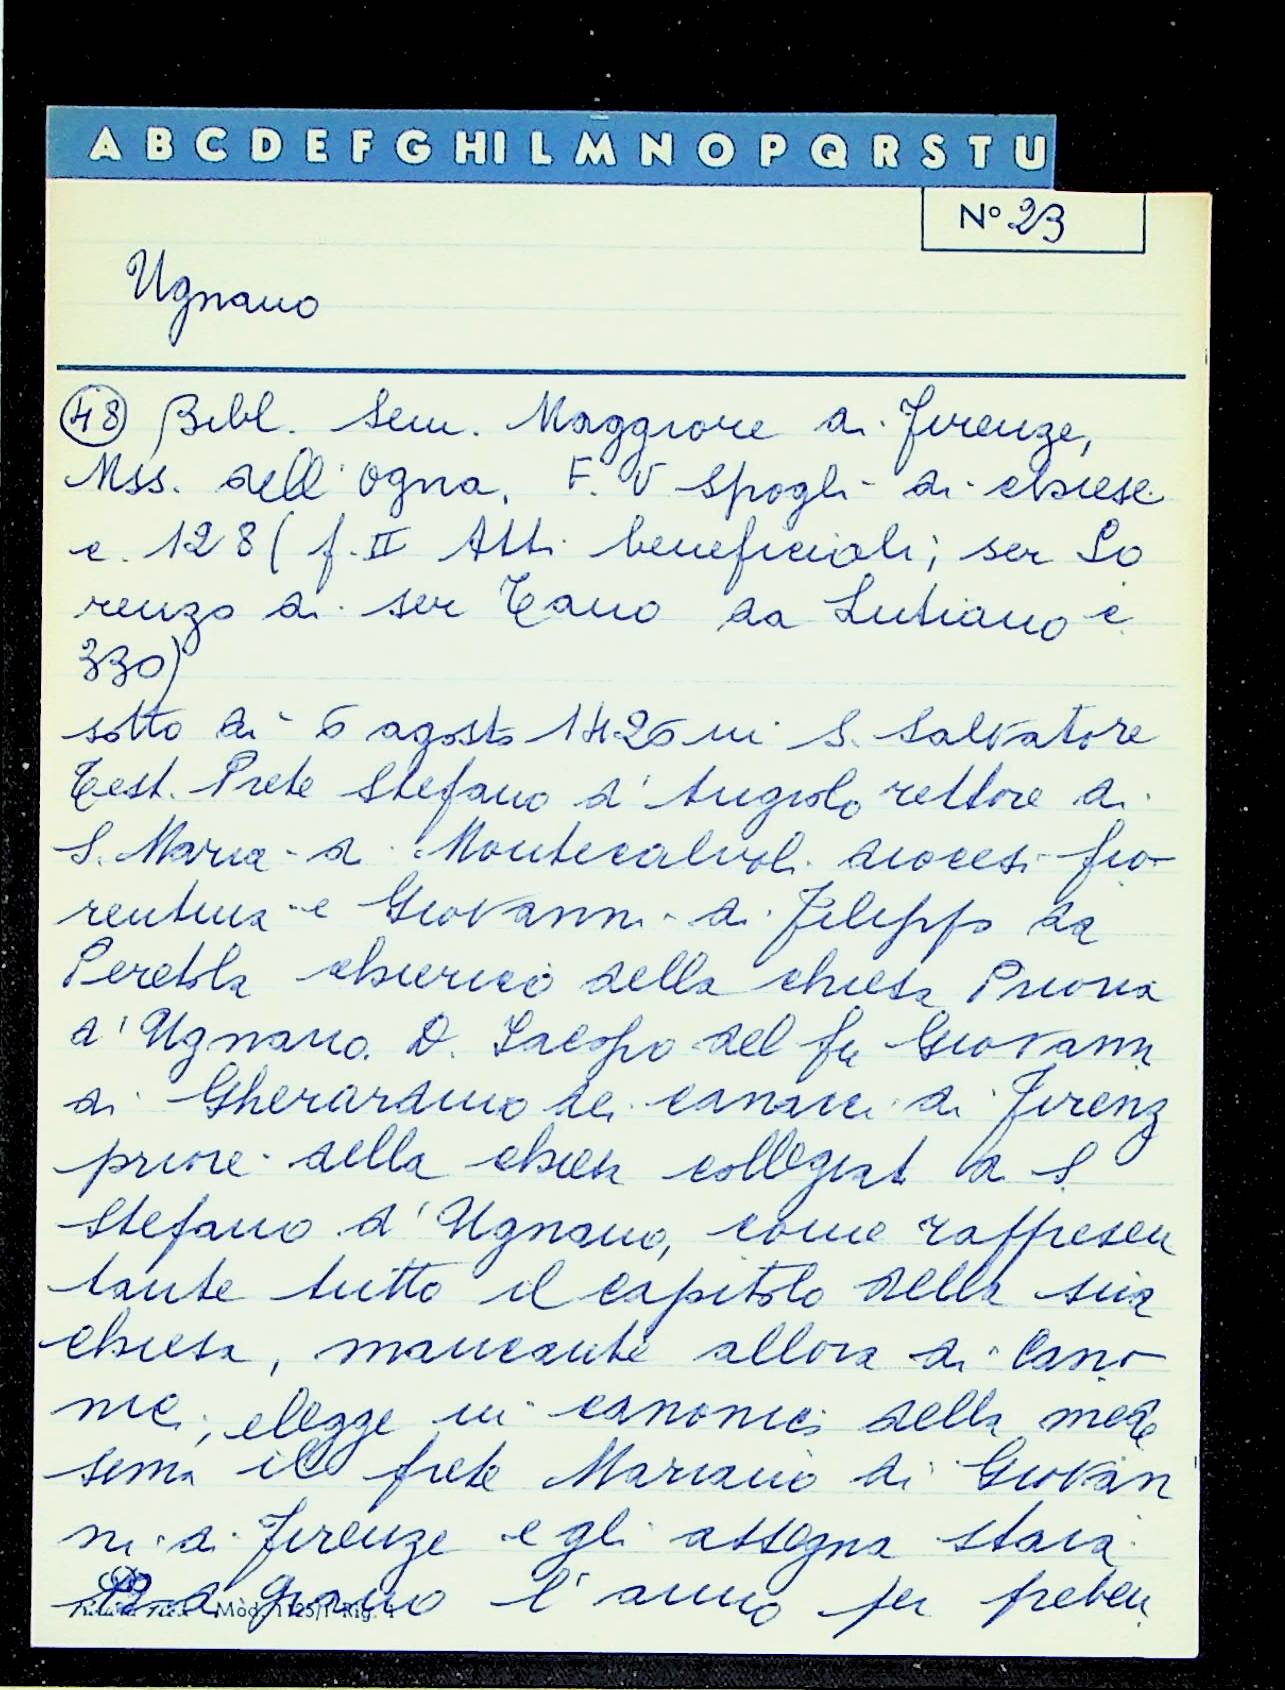 A B C D E F G HI L M N O P Q R S T U
N° 23
Ugnano
48 Bibl. Sem. Maggiore di Firenze,
Mss. dell'Ogna, F. V Spogli di chiese
c. 128 (f. II Atti beneficiali; ser Lo
renzo di ser Tano da Lutiano c.
330)
sotto di 6 agosto 1426 in S. Salvatore
Test. Prete Stefano d'Angiolo rettore di
S. Maria a Montecalvoli diocesi fio-
rentina e Giovanni di Filippo da
Peretola chierico della chiesa Prioria
d'Ugnano. D. Iacopo del fu Giovanni
di Gherardino dei canacci di Firenz
priore della chiesa collegiat a S.
Stefano d'Ugnano, come rappresen
tante tutto il capitolo della sua
chiesa, mancante allora di Cano-
nici, elegge in canonico della mede
sima il prete Mariano di Giovan
ni di Firenze e gli assegna staia
12 di grano l'anno per preben
Mod. 1125/1 Rig. 4